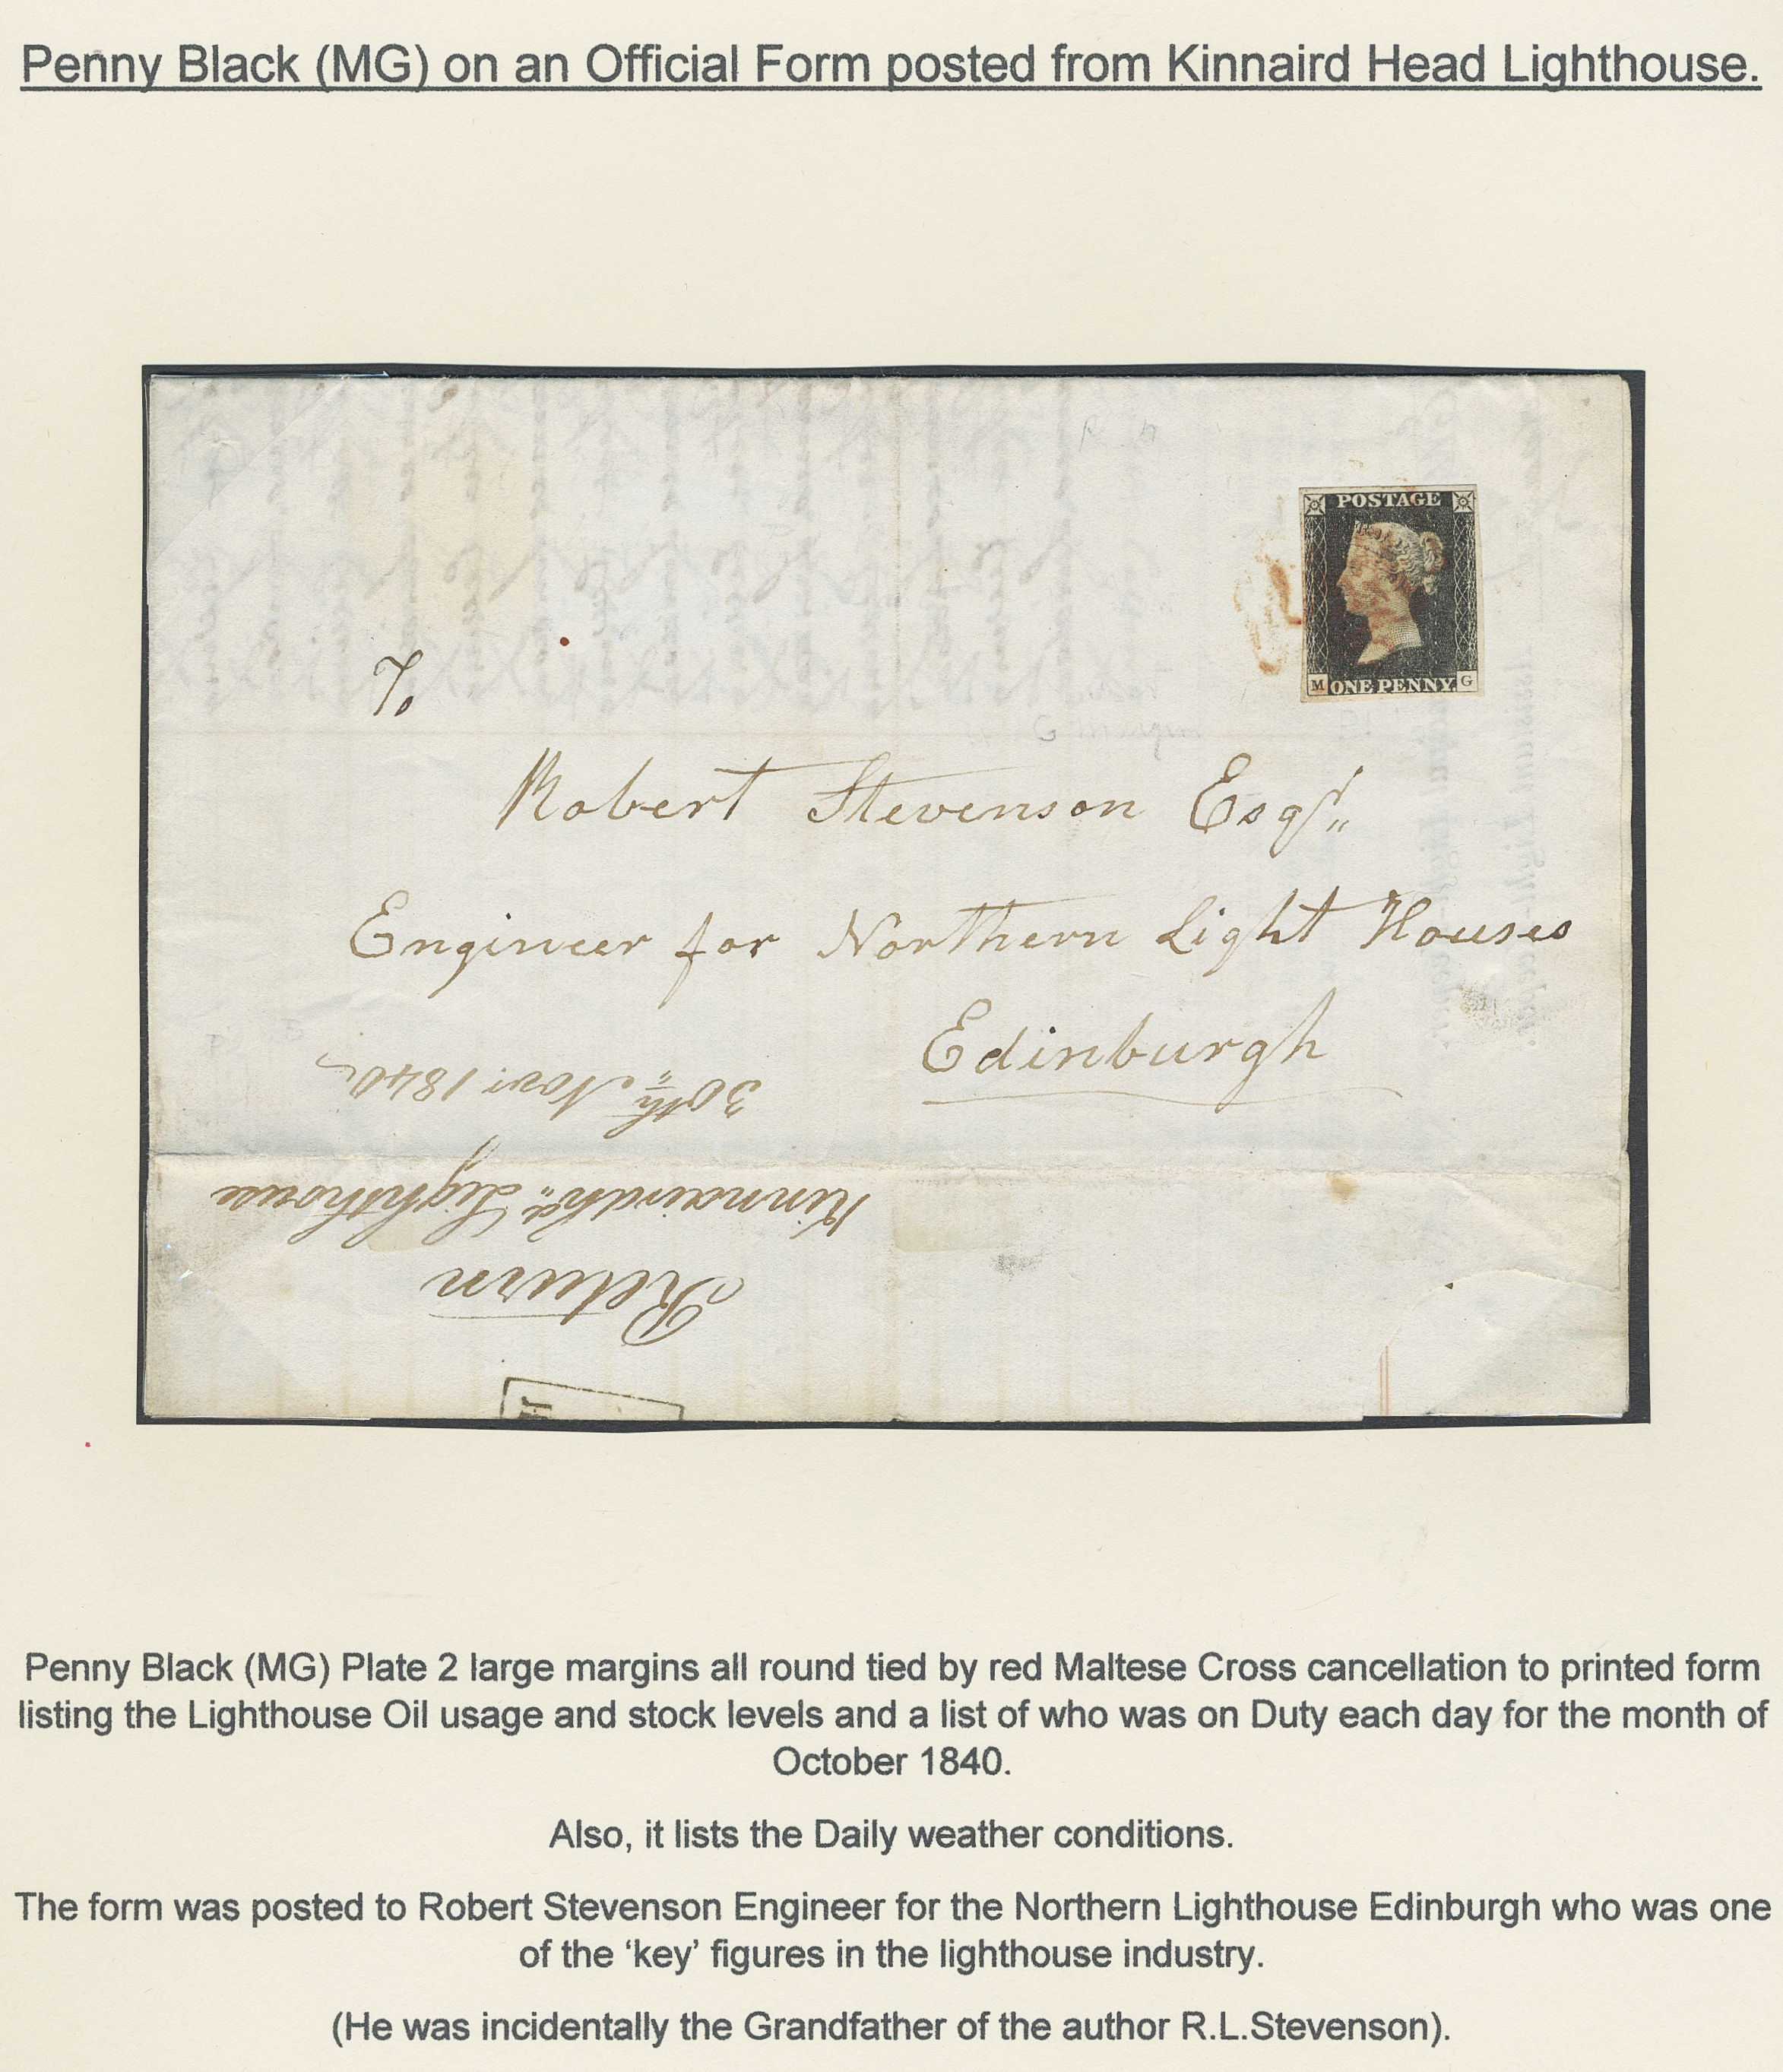 Penny Black (MG) on an Official Form posted from Kinnaird Head Lighthouse.
POSTAGE
M ONE PENNY. G
To
Robert Stevenson Esqr"
Engineer for Northern Light Houses
Edinburgh
Return
Kinnairdhd" Lighthouse
30th" Novr 1840
Penny Black (MG) Plate 2 large margins all round tied by red Maltese Cross cancellation to printed form
listing the Lighthouse Oil usage and stock levels and a list of who was on Duty each day for the month of
October 1840.
Also, it lists the Daily weather conditions.
The form was posted to Robert Stevenson Engineer for the Northern Lighthouse Edinburgh who was one
of the ‘key’ figures in the lighthouse industry.
(He was incidentally the Grandfather of the author R.L.Stevenson).